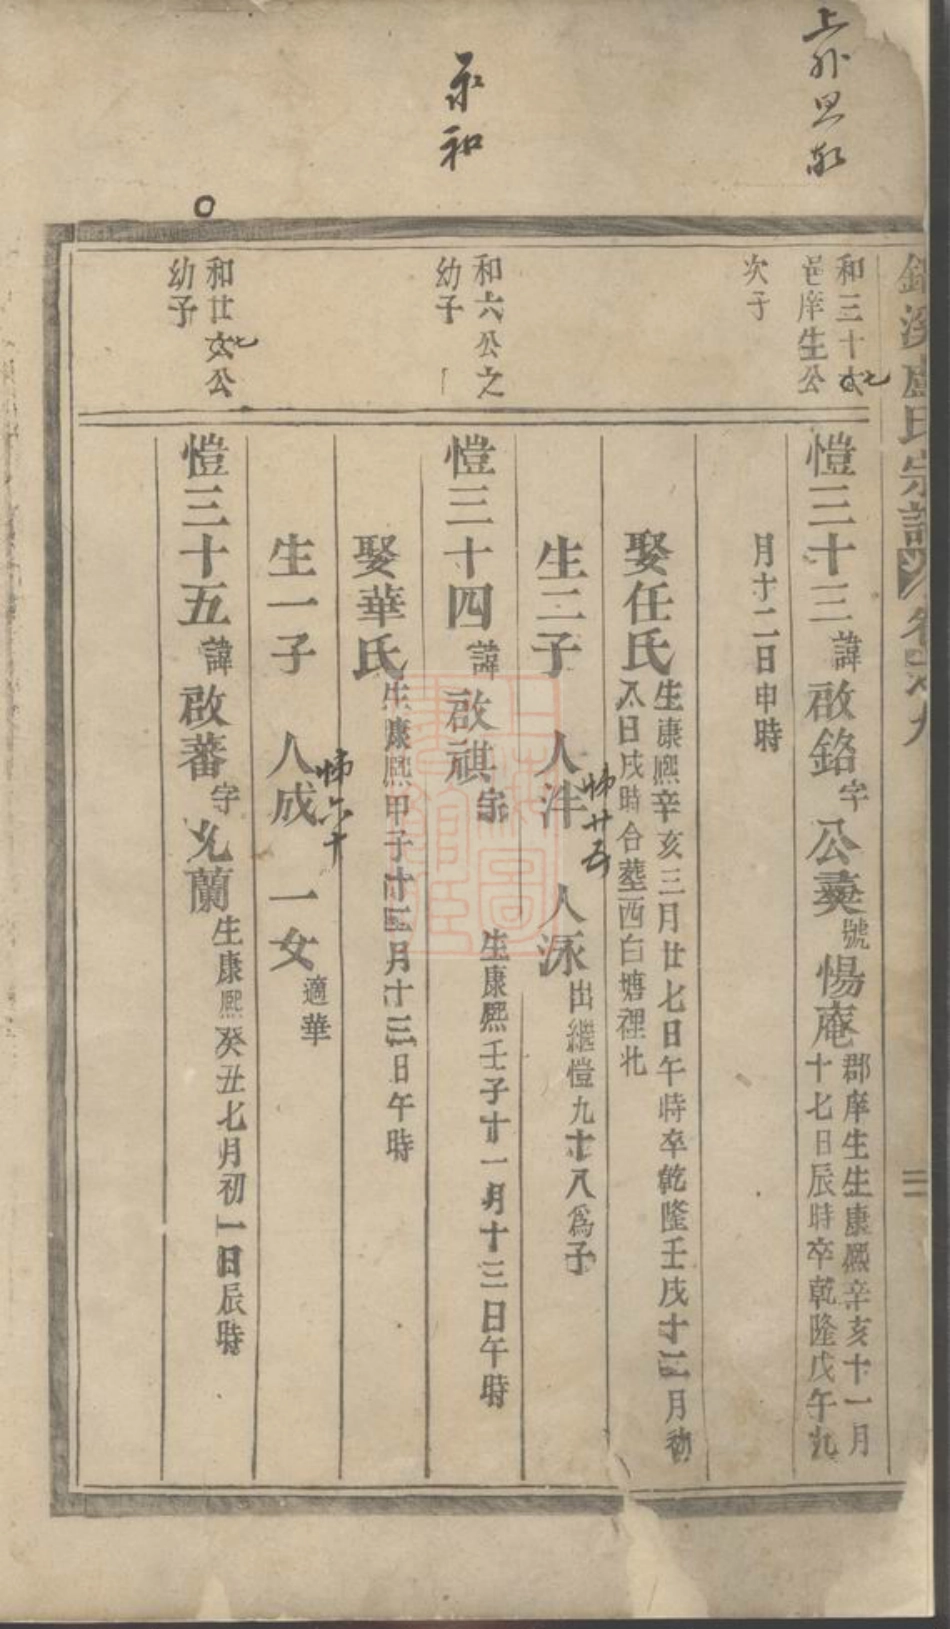 溪盧氏宗譜
上
永和
和三十七
邑庠生公
次子
愷三十三 諱 啟銘 字 公奭 號 惕庵 郡庠生生康熙辛亥十一月
十七日辰時卒乾隆戊午九
月十二日申時
娶任氏 生康熙辛亥三月廿七日午時卒乾隆壬戌十二月初
八日戌時合塟西白塘裡北
生二子 人泮 人派 出繼愷九十八爲子
廿五
和六公之
幼子
愷三十四 諱 啟祺 字 生康熙壬子十一月十三日午時
娶華氏 生康熙甲子十二月十三日午時
生一子 人成 一女 適華
六十
和廿七公
幼子
愷三十五 諱 啟蕃 字 允蘭 生康熙癸丑七月初一日辰時